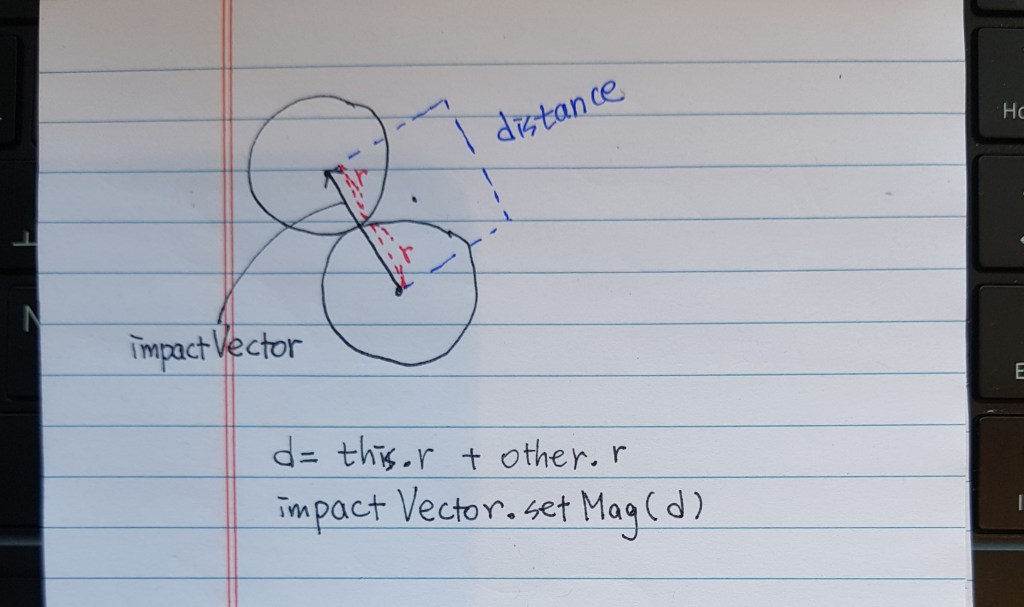 distance
r
r
impactVector
d= this.r + other.r
impactVector.setMag(d)